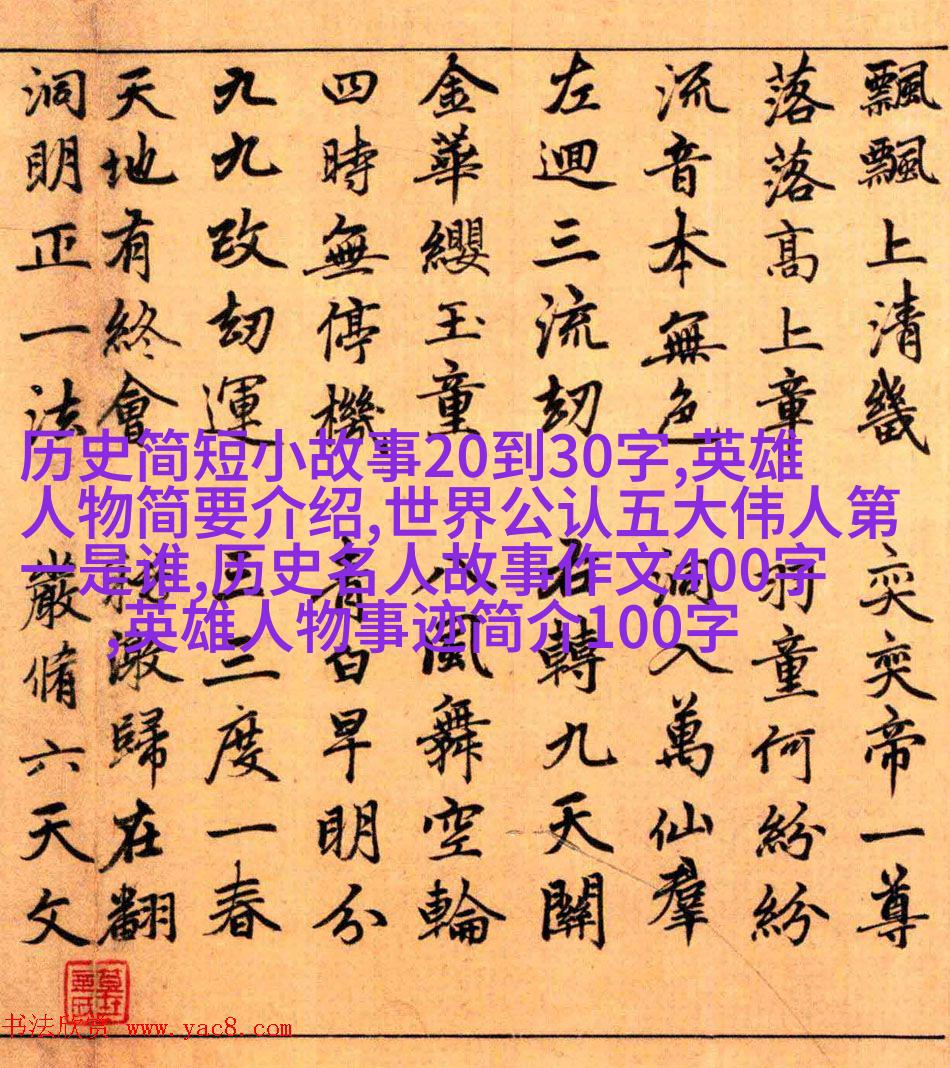 飄飄上清畿 奕奕帝一尊
落落高上章 羽童何紛紛
流音本無色 洞入萬仙羣
左迴三流刧 右轉九天關
金華纓玉童 八風舞空輪
四時無停機 白早明分
九九改刧運 三度一春
天地有終會 歸在翻
洞明正一法 嚴脩六天文
历史简短小故事20到30字,英雄
人物简要介绍,世界公认五大伟人第
一是谁,历史名人故事作文400字
,英雄人物事迹简介100字
书法欣赏 www.yac8.com